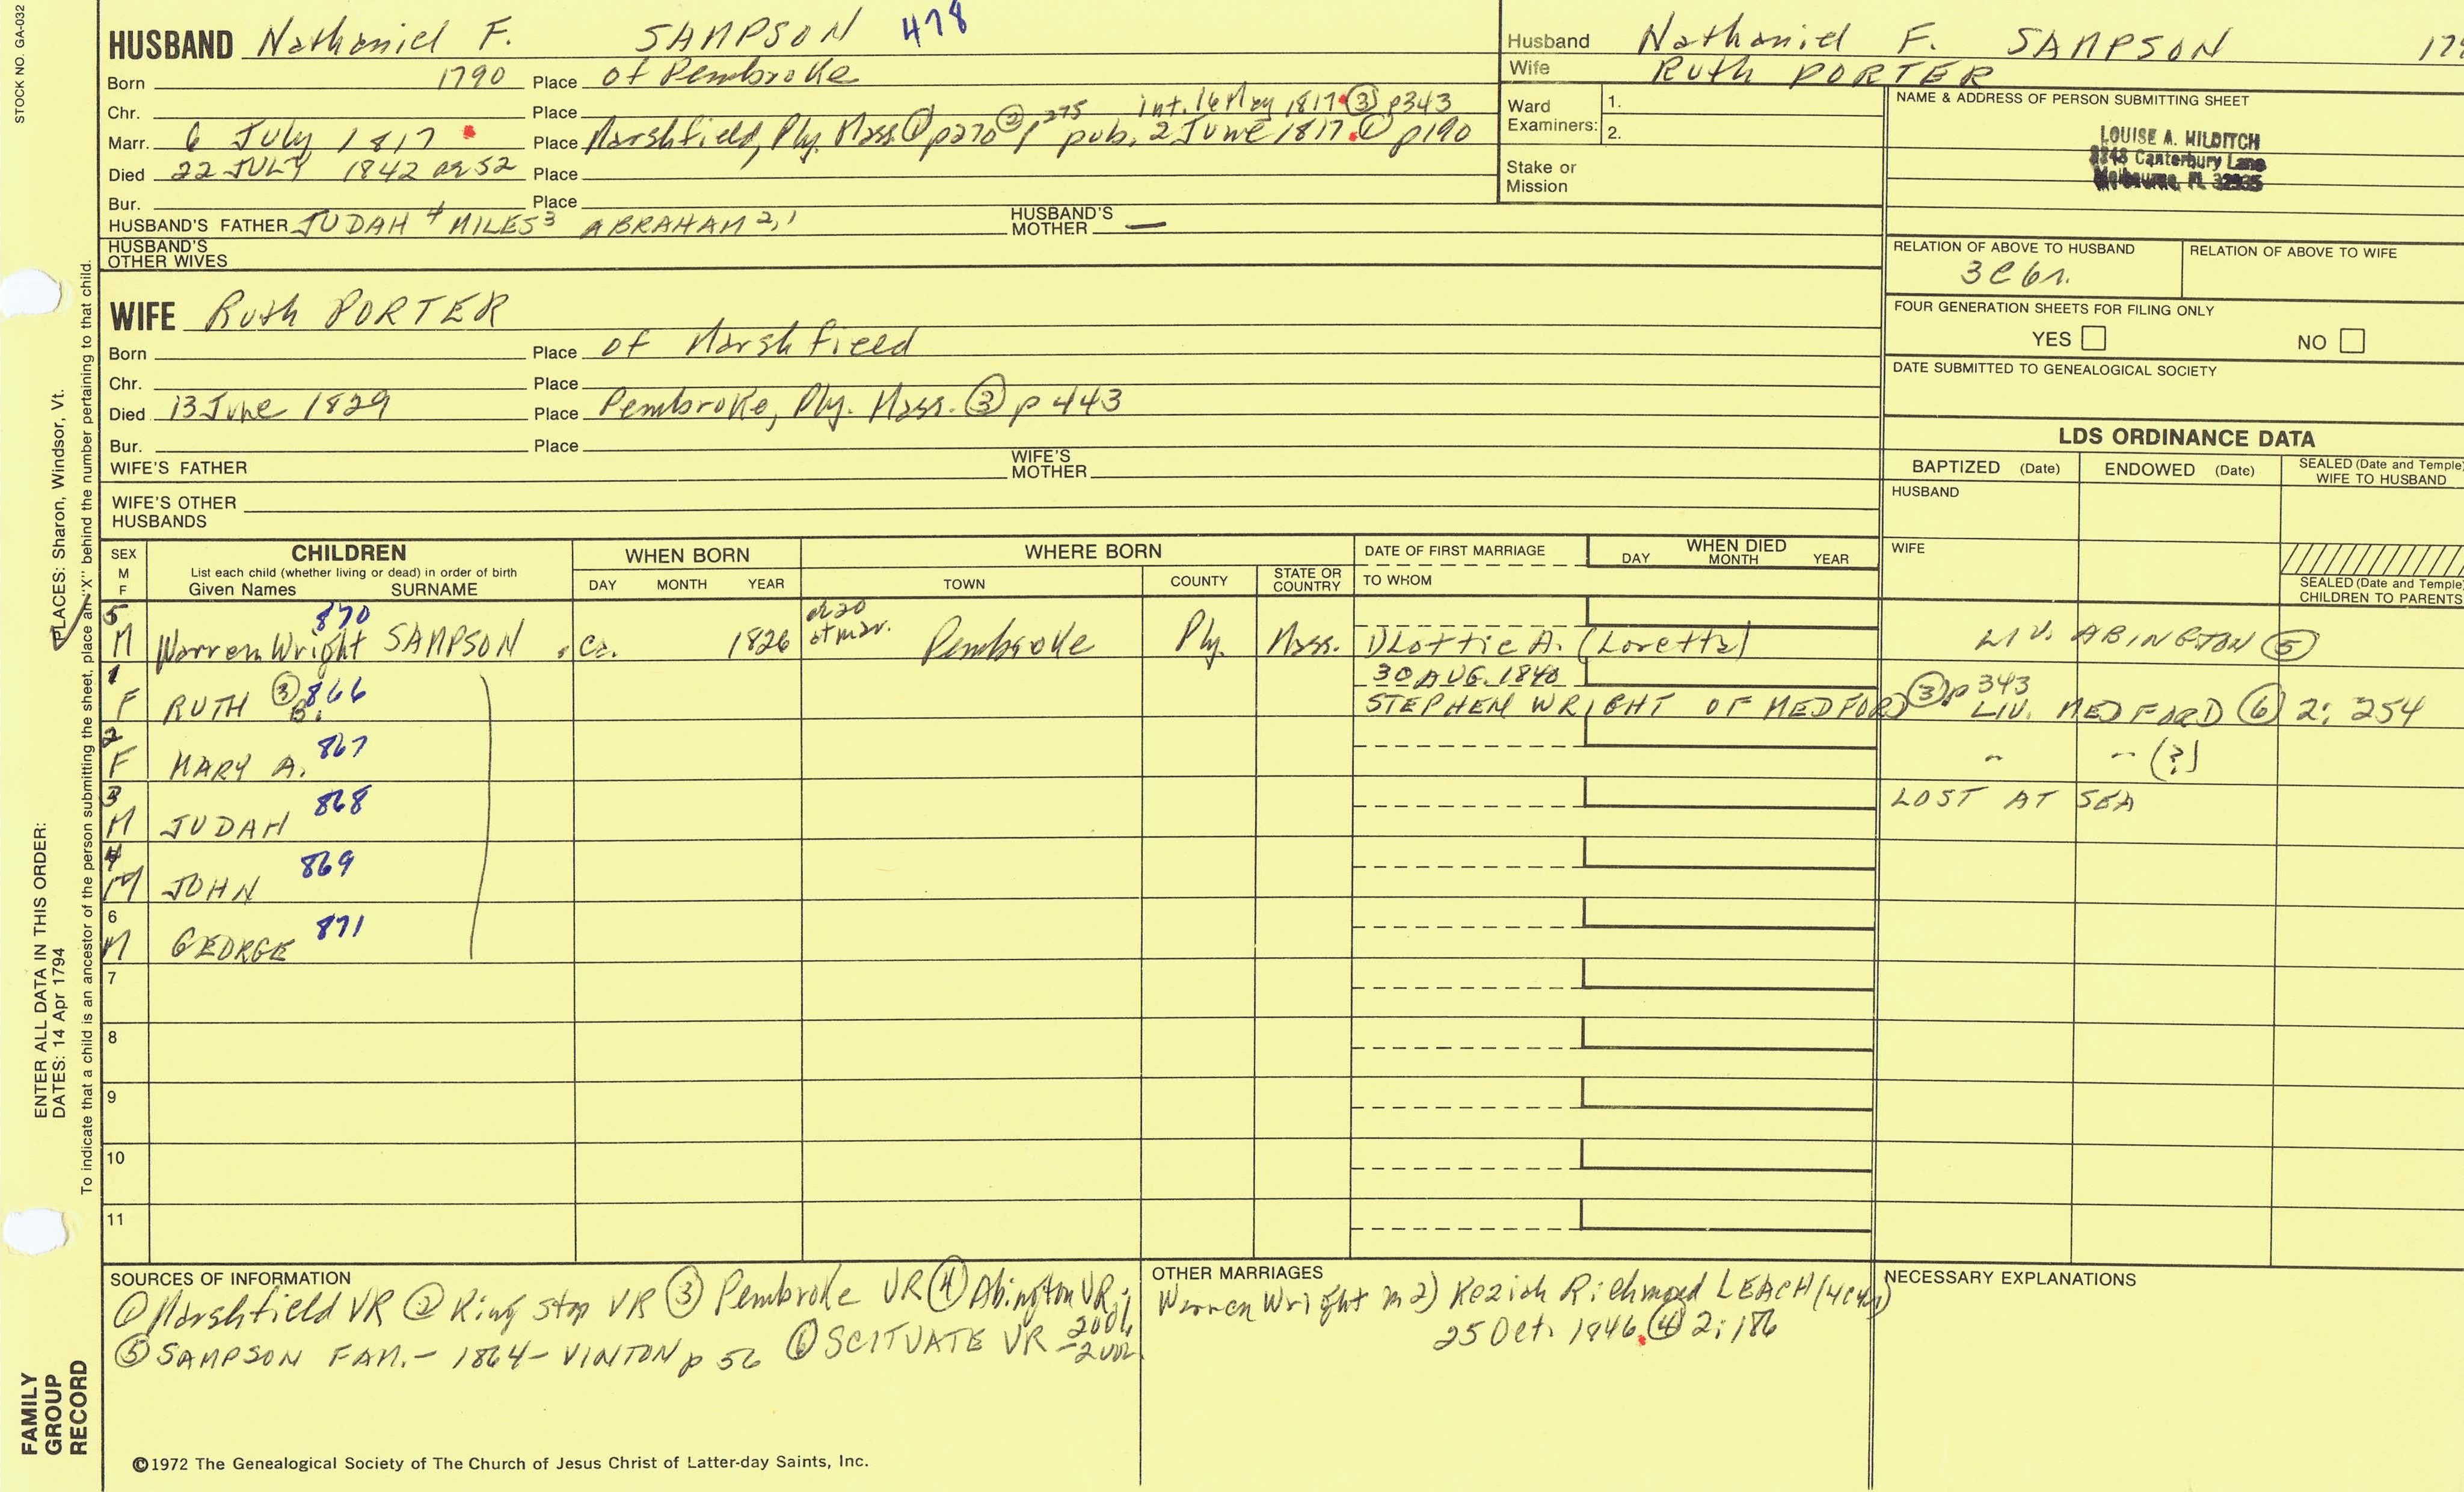 STOCK NO. GA-032
HUSBAND Nathaniel F. SAMPSON 478
Born 1790 Place of Pembroke
Chr. Place int. 16 May 1817 ③ p343
Marr. 6 July 1817 Place Marshfield, Ply. Mass. ① p270 ② p275 pub. 2 June 1817. ① p190
Died 22 JULY 1842 or 52 Place
Bur. Place
HUSBAND'S FATHER JUDAH 4 MILES 3 ABRAHAM 2,1 HUSBAND'S MOTHER —
HUSBAND'S OTHER WIVES
Husband Nathaniel F. SAMPSON
Wife Ruth PORTER
Ward Examiners: 1.
2.
Stake or Mission
NAME & ADDRESS OF PERSON SUBMITTING SHEET
LOUISE A. MILDITCH
Canterbury Lane
Melbourne, FL 32935
RELATION OF ABOVE TO HUSBAND
RELATION OF ABOVE TO WIFE
FOUR GENERATION SHEETS FOR FILING ONLY
YES NO
DATE SUBMITTED TO GENEALOGICAL SOCIETY
WIFE Ruth PORTER
Born Place of Marshfield
Chr. Place
Died 13 June 1829 Place Pembroke, Ply. Mass. ③ p 443
Bur. Place
WIFE'S FATHER WIFE'S MOTHER
WIFE'S OTHER HUSBANDS
LDS ORDINANCE DATA
BAPTIZED (Date) ENDOWED (Date) SEALED (Date and Temple) WIFE TO HUSBAND
HUSBAND
WIFE
SEALED (Date and Temple) CHILDREN TO PARENTS
SEX M F
CHILDREN
List each child (whether living or dead) in order of birth
Given Names SURNAME
WHEN BORN
DAY MONTH YEAR
WHERE BORN
TOWN COUNTY STATE OR COUNTRY
DATE OF FIRST MARRIAGE
TO WHOM
WHEN DIED
DAY MONTH YEAR
5 870
M Warren Wright SAMPSON ca. 1826 ae 20 at mar. Pembroke Ply. Mass. 1) Lottie A. (Loretta) LIV. ABINGTON ⑤
1 30 AUG. 1840
F RUTH B. ③ 866 STEPHEN WRIGHT OF MEDFORD ③ p 343 LIV. MEDFORD ⑥ 2: 254
2
F MARY A. 867 " " (?)
3
M JUDAH 868 LOST AT SEA
4
M JOHN 869
6
M GEORGE 871
7
8
9
10
11
SOURCES OF INFORMATION
① Marshfield VR ② Kingston VR ③ Pembroke VR ④ Abington VR;
⑤ SAMPSON FAM. - 1864 - VINTON p 56 ⑥ SCITUATE VR
OTHER MARRIAGES
Warren Wright m 2) Keziah Richmond LEACH
25 Oct. 1846. ④ 2: 186
NECESSARY EXPLANATIONS
©1972 The Genealogical Society of The Church of Jesus Christ of Latter-day Saints, Inc.
FAMILY GROUP RECORD
ENTER ALL DATA IN THIS ORDER:
DATES: 14 Apr 1794
PLACES: Sharon, Windsor, Vt.
To indicate that a child is an ancestor of the person submitting the sheet, place an "X" behind the number pertaining to that child.